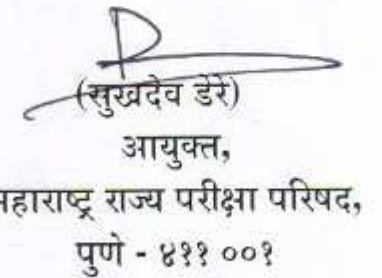 (सुखदेव डेरे)
आयुक्त,
महाराष्ट्र राज्य परीक्षा परिषद,
पुणे - ४११ ००१